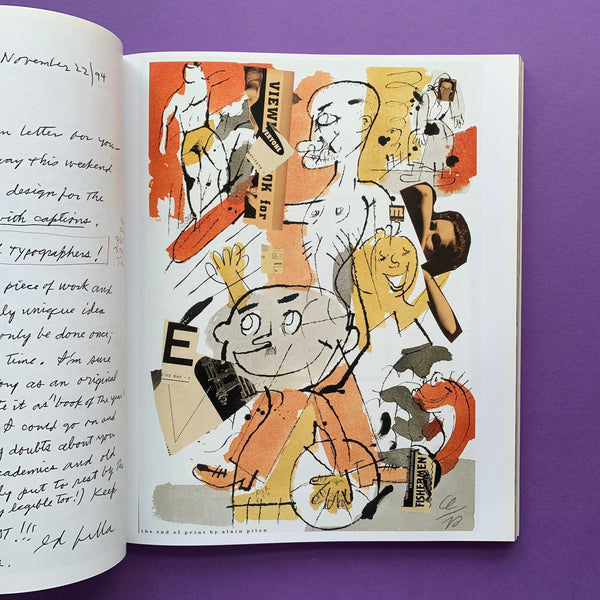 November 22/94
letter for you
this weekend
design for the
with captions.
TYPOGRAPHERS!
piece of work and
unique idea
only be done once;
time. I'm sure
as an original
it as 'book of the year'
I could go on and
doubts about you
academics and old
put to rest by this
legible too!) Keep
!!!
Ed Fella
VIEW
OK for
E
E
FISHERMEN
the end of print by alain pilon